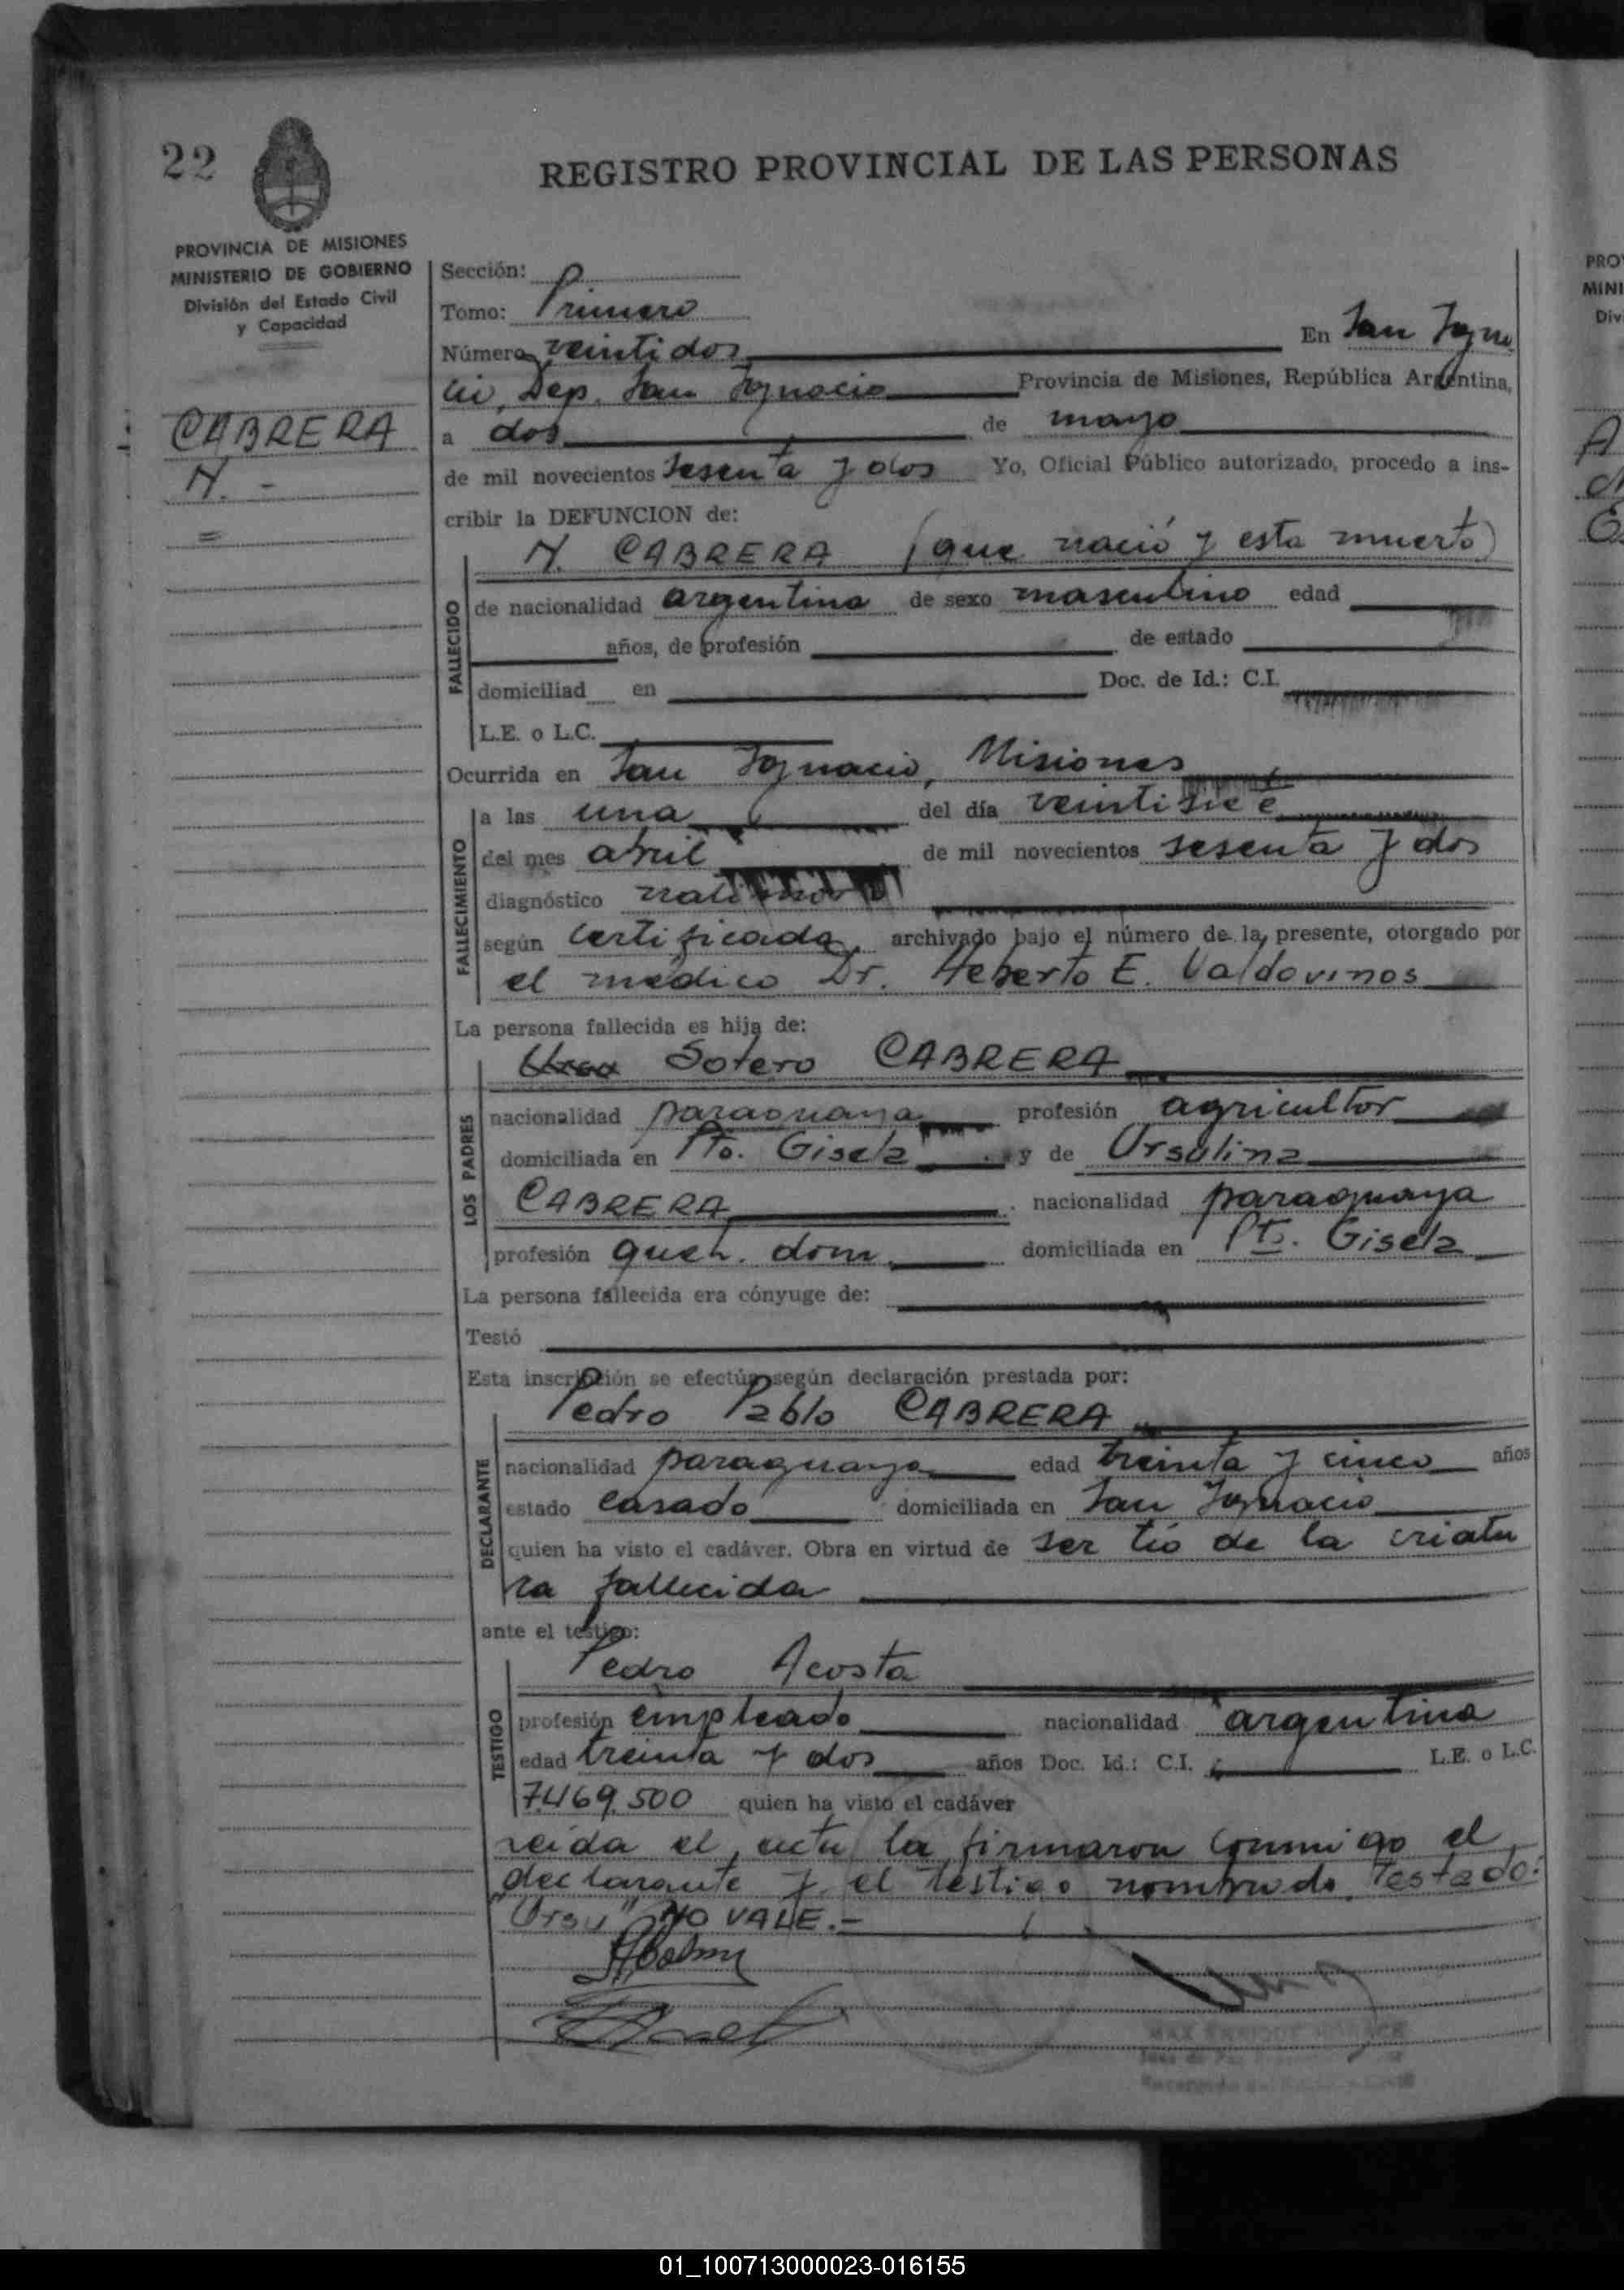 22
REGISTRO PROVINCIAL DE LAS PERSONAS
PROVINCIA DE MISIONES
MINISTERIO DE GOBIERNO
División del Estado Civil
y Capacidad
CABRERA
N. -
=
Sección:
Tomo: Primero
Número veintidos En San Igna
cio, Dep. San Ignacio Provincia de Misiones, República Argentina,
a dos de mayo
de mil novecientos sesenta y dos Yo, Oficial Público autorizado, procedo a ins-
cribir la DEFUNCION de:
N. CABRERA (que nació y esta muerto)
FALLECIDO
de nacionalidad argentina de sexo masculino edad
años, de profesión de estado
domiciliad en Doc. de Id.: C.I.
L.E. o L.C.
Ocurrida en San Ignacio, Misiones
FALLECIMIENTO
a las una del día veintisiete
del mes abril de mil novecientos sesenta y dos
diagnóstico
según certificado, archivado bajo el número de la presente, otorgado por
el médico Dr. Heberto E. Valdovinos
La persona fallecida es hija de:
LOS PADRES
Sotero CABRERA
nacionalidad paraguaya profesión agricultor
domiciliada en Pto. Gisela y de Ursulina
CABRERA nacionalidad paraguaya
profesión queh. dom. domiciliada en Pto. Gisela
La persona fallecida era cónyuge de:
Testó
Esta inscripción se efectúa según declaración prestada por:
DECLARANTE
Pedro Pablo CABRERA
nacionalidad paraguaya edad treinta y cinco años
estado casado domiciliada en San Ignacio
quien ha visto el cadáver. Obra en virtud de ser tío de la criatu
ra fallecida
ante el testigo:
TESTIGO
Pedro Acosta
profesión empleado nacionalidad argentina
edad treinta y dos años Doc. Id.: C.I. L.E. o L.C.
7.469.500 quien ha visto el cadáver
Leida el acta la firmaron conmigo el
declarante y el testigo nombrado. Testado:
"Ursu" NO VALE.-
PRO
MINI
Div
01_100713000023-016155